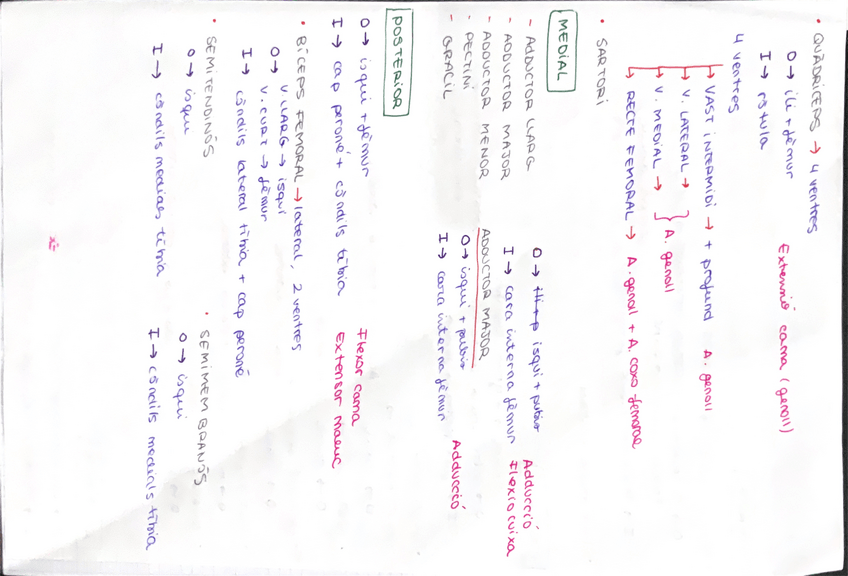 • QUÀDRICEPS → 4 ventres
O → ili + fèmur
I → ròtula
Extensió cama (genoll)
4 ventres
→ VAST INTERMIDI → + profund A. genoll
→ V. LATERAL →
→ V. MEDIAL → } A. genoll
→ RECTE FEMORAL → A. genoll + A. coxo-femoral
• SARTORI
MEDIAL
- ADDUCTOR LLARG
- ADDUCTOR MAJOR
- ADDUCTOR MENOR
- PECTINI
- GRACIL
O → isqui + pubis
I → cara interna fèmur
Adducció
Flexió cuixa
ADDUCTOR MAJOR
O → isqui + pubis
I → cara interna fèmur
Adducció
POSTERIOR
O → isqui + fèmur
I → cap peroné + còndils tíbia
Flexor cama
Extensor maluc
• BÍCEPS FEMORAL → lateral, 2 ventres
O → V. LLARG → isqui
V. CURT → fèmur
I → còndils lateral tíbia + cap peroné
• SEMITENDINÓS
O → isqui
I → còndils medials tíbia
• SEMIMEMBRANÓS
O → isqui
I → còndils medials tíbia